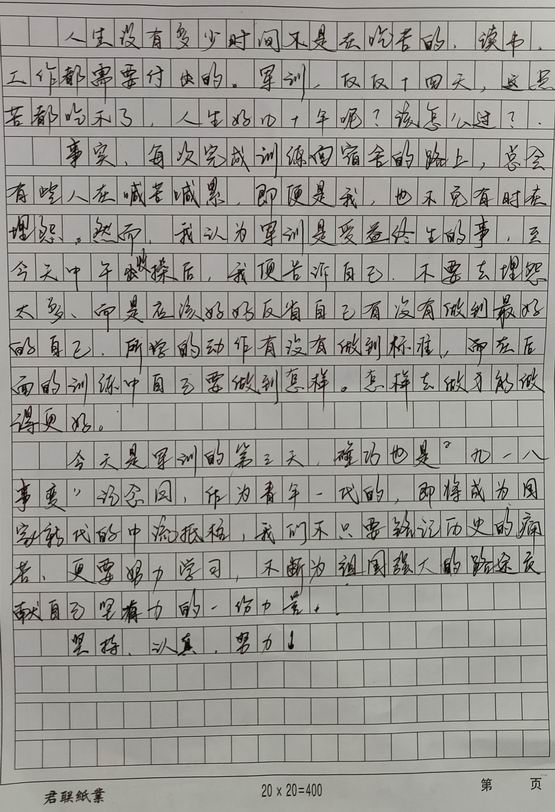 人生没有多少时间不是在吃苦的,读书,
工作都需要付出的。军训,仅仅十四天,这点
苦都吃不了,人生好几十年呢?该怎么过?
事实,每次完成训练回宿舍的路上,总会
有些人在喊苦喊累,即便是我,也不免有时在
埋怨。然而,我认为军训是受益终生的事,至
今天中午收操后,我便告诉自己,不要去埋怨
太多,而是应该好好反省自己有没有做到最好
的自己,所学的动作有没有做到标准,而在后
面的训练中自己要做到怎样。怎样去做才能做
得更好。
今天是军训的第三天,碰巧也是“九一八
事变”纪念日,作为青年一代的,即将成为国
家新代的中流抵柱,我们不只要铭记历史的痛
苦,更要努力学习,不断为祖国强大的路途贡
献自己坚有力的一份力量。
坚持,认真,努力!
君联纸业
20×20=400
第 页